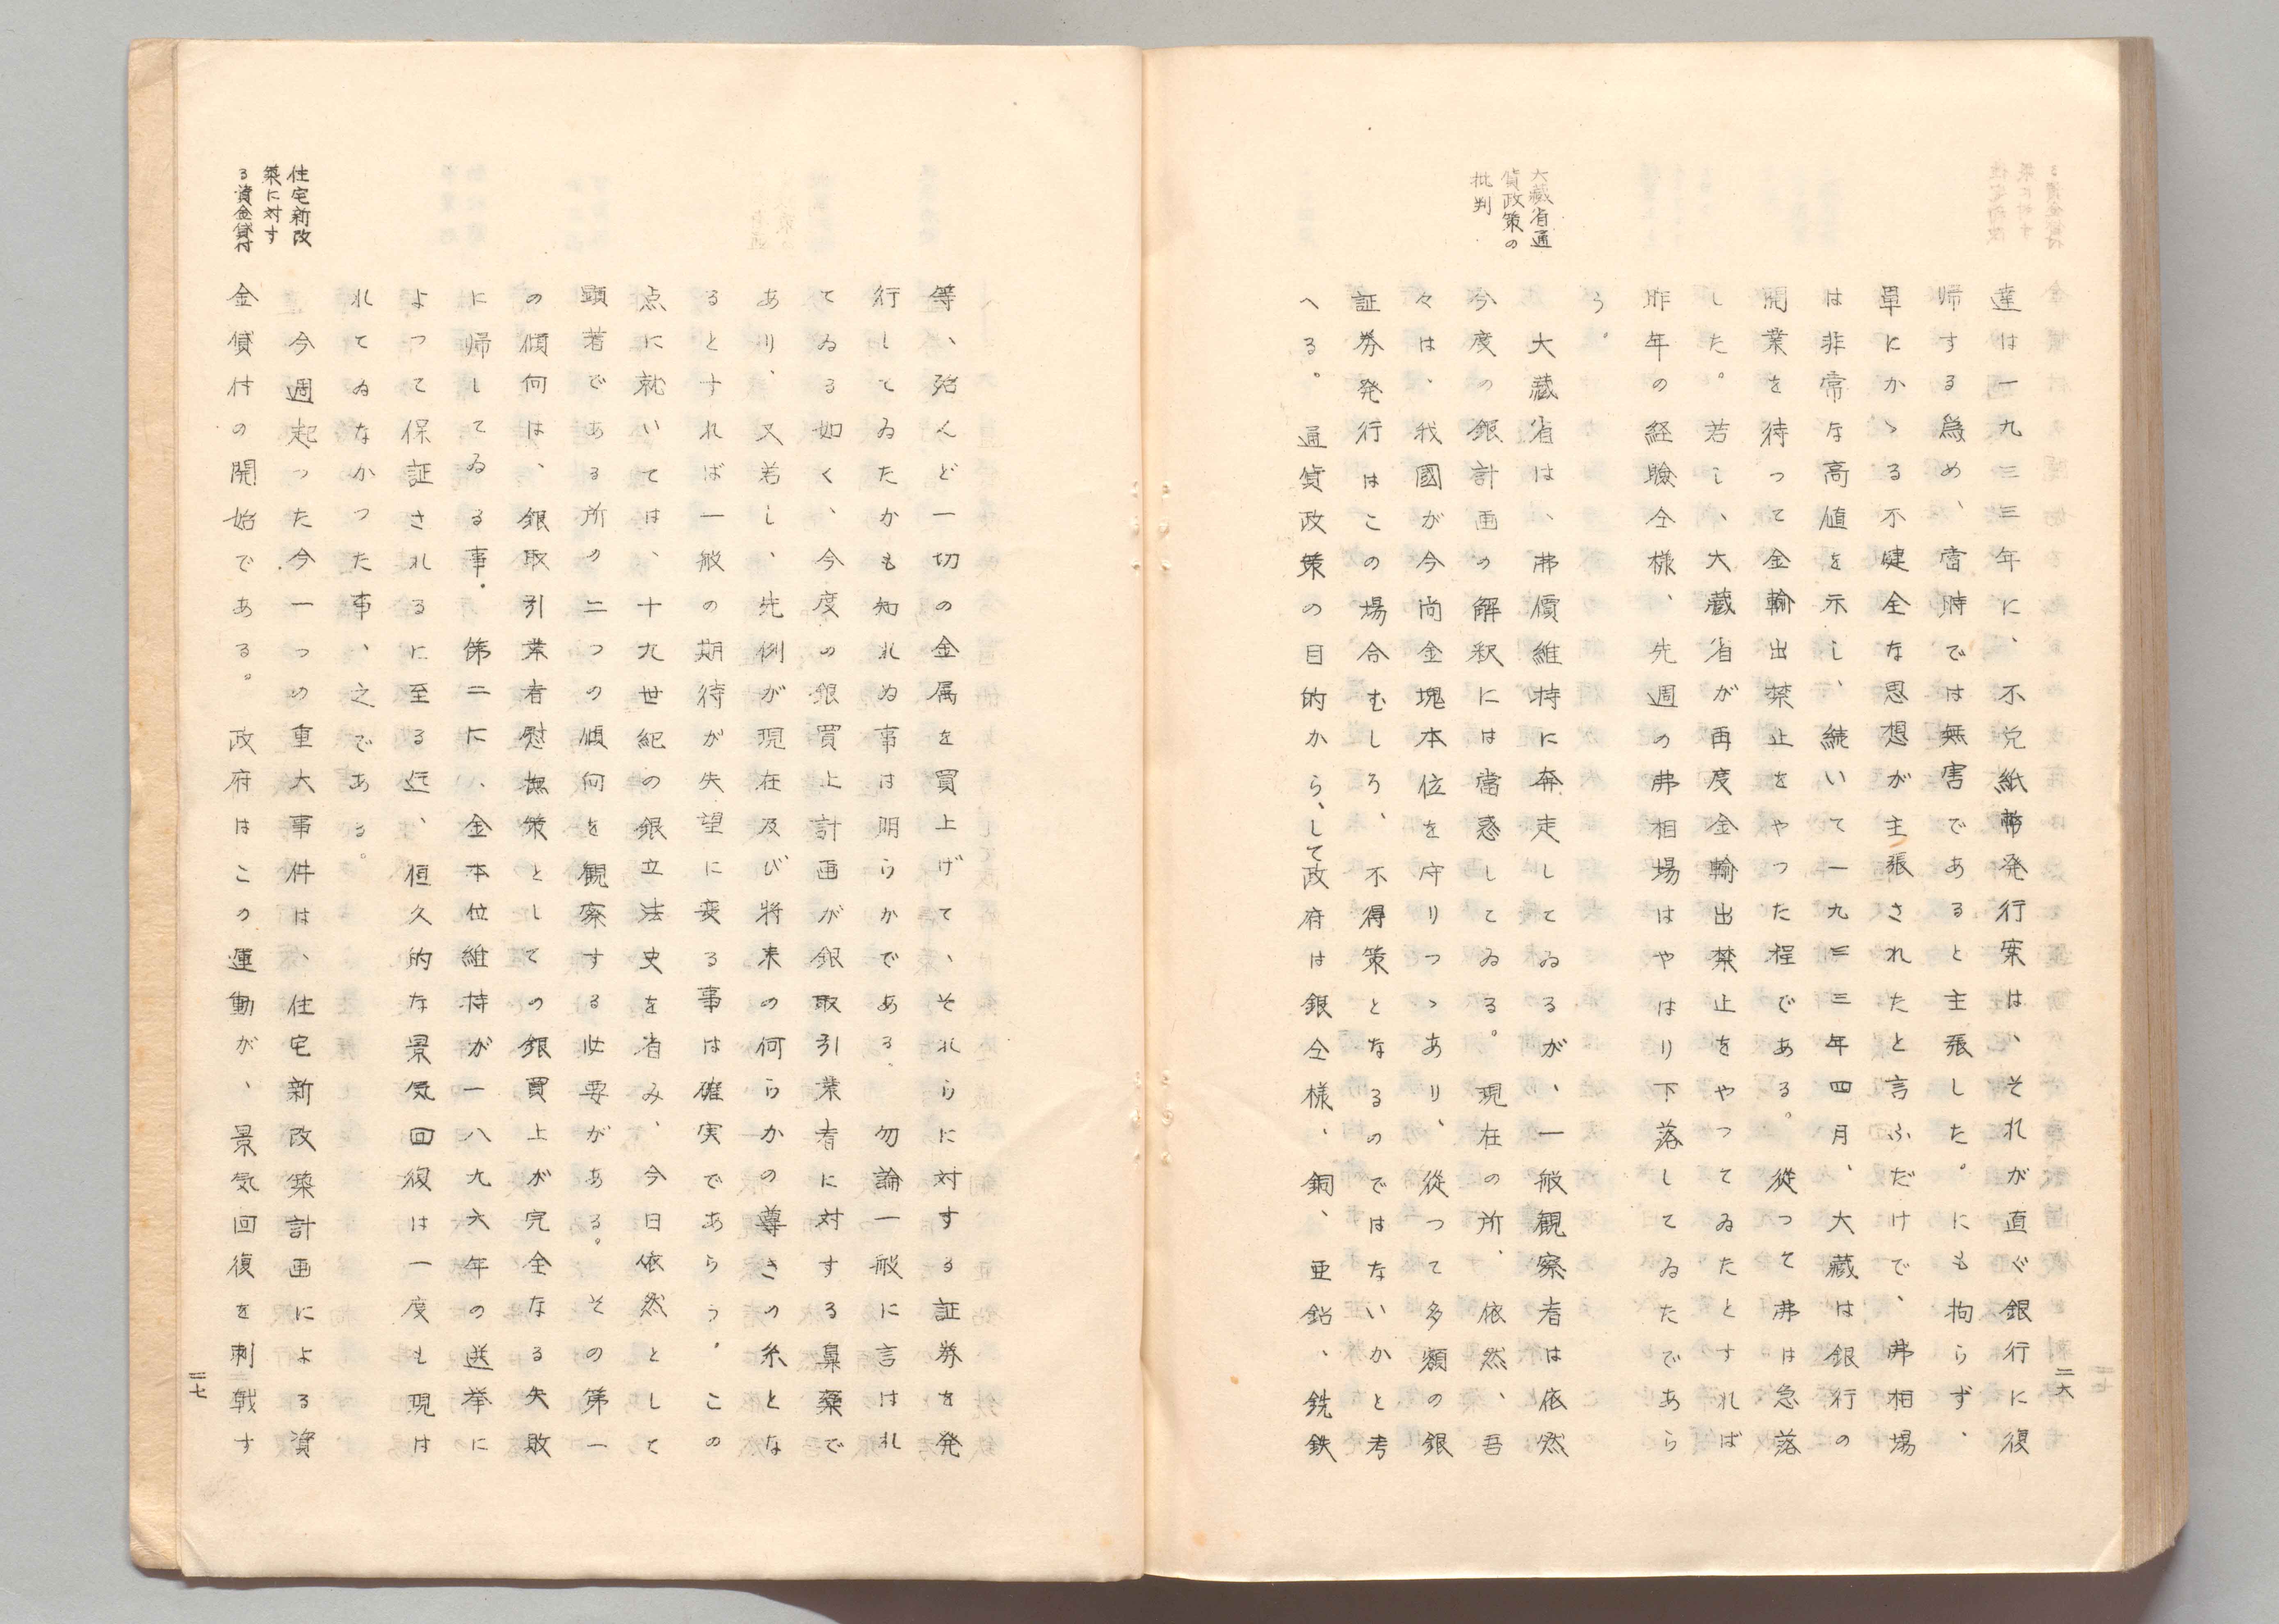 達は一九三三年に、不兌紙幣発行案は、それが直ぐ銀行に復
帰する為め、當時では無害であると主張した。にも拘らず、
単にかゝる不健全な思想が主張されたと言ふだけで、弗相場
は非常な高値を示し、続いて一九三三年四月、大蔵は銀行の
開業を待って金輸出禁止をやった程である。従って弗は急落
した。若し、大蔵省が再度金輸出禁止をやってゐたとすれば
昨年の経験仝様、先週の弗相場はやはり下落してゐたであら
う。
大蔵省通
貨政策の
批判
大蔵省は、弗價維持に奔走してゐるが、一般観察者は依然
今度の銀計画の解釈には當惑してゐる。現在の所、依然、吾
々は、我國が今尚金塊本位を守りつゝあり、従つて多額の銀
証券発行はこの場合むしろ、不得策となるのではないかと考
へる。通貨政策の目的から、して政府は銀仝様、銅、亜鉛、銑鉄
二六
等、殆んど一切の金属を買上げて、それらに対する証券を発
行してゐたかも知れぬ事は明らかである。勿論一般に言はれ
てゐる如く、今度の銀買上計画が銀取引業者に対する鼻薬で
あり、又若し、先例が現在及び将来の何らかの導きの糸とな
るとすれば一般の期待が失望に変る事は確実であらう。この
点に就いては、十九世紀の銀立法史を省み、今日依然として
顕著である所の二つの傾何を観察する必要がある。その第一
の傾何は、銀取引業者慰撫策としての銀買上が完全なる失敗
に帰してゐる事。第二に、金本位維持が一八九六年の選挙に
よって保証されるに至る迄、恒久的な景気回復は一度も現は
れてゐなかつた事、之である。
住宅新改
築に対す
る資金貸付
今週起った今一つの重大事件は、住宅新改築計画による資
金貸付の開始である。政府はこの運動が、景気回復を刺戟す
二七